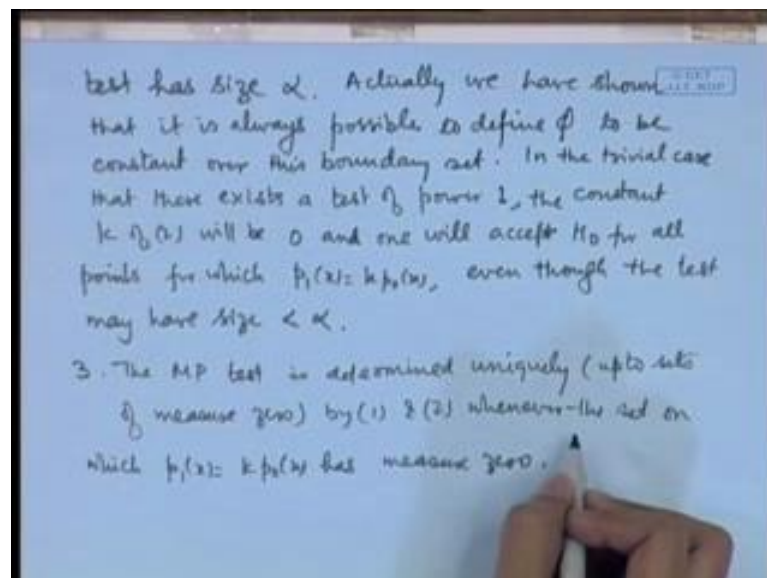 test has size α. Actually we have shown
that it is always possible to define φ to be
constant over this boundary set. In the trivial case
that there exists a test of power 1, the constant
k of (2) will be 0 and one will accept H₀ for all
points for which p₁(x) = k p₀(x), even though the test
may have size < α.
3. The MP test is determined uniquely (upto sets
of measure zero) by (1) & (2) whenever the set on
which p₁(x) = k p₀(x) has measure zero.